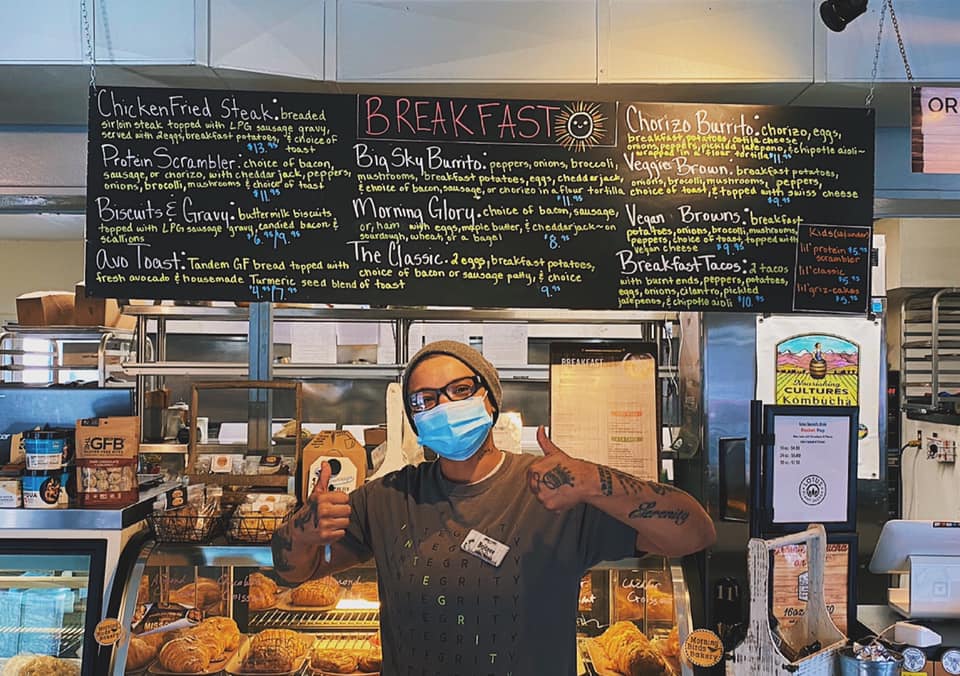 ChickenFried Steak: breaded
sirloin steak topped with LPG sausage gravy,
served with 2eggs, breakfast potatoes, & choice of
toast
$13.95
Protein Scrambler: choice of bacon,
sausage, or chorizo, with cheddar jack, peppers,
onions, brocolli, mushrooms & choice of toast
$11.95
Biscuits & Gravy: buttermilk biscuits
topped with LPG sausage gravy, candied bacon &
scallions
$6.95/9.95
Avo Toast: Tandem GF bread topped with
fresh avocado & housemade Turmeric seed blend
4.95/7.95
BREAKFAST
Big Sky Burrito: peppers, onions, broccoli,
mushrooms, breakfast potatoes, eggs, cheddar jack,
& choice of bacon, sausage, or chorizo in a flour tortilla
$11.95
Morning Glory: choice of bacon, sausage,
or, ham with eggs, maple butter, & cheddarjack~ on
sourdough, wheat, or a bagel
$8.95
The Classic: 2 eggs, breakfast potatoes,
choice of bacon or sausage patty, & choice
of toast
9.95
Chorizo Burrito: chorizo, eggs,
breakfast potatoes, cotija cheese,
onions, peppers, pickled jalepeno, & chipotle aioli~
wrapped in a flour tortilla $11.95
Veggie Brown: breakfast potatoes,
onions, brocolli, mushrooms, peppers,
choice of toast, & topped with swiss cheese
$9.95
Vegan Browns: breakfast
potatoes, onions, brocolli, mushrooms
peppers, choice of toast, topped with
vegan cheese $9.95
Breakfast Tacos: 2 tacos
with burnt ends, peppers, potatoes,
eggs, onions, cilantro, pickled
jalepenos, & chipotle aioli $10.95
Kids (10/under)
lil' protein $5.95
scrambler
lil' classic
$5.95
lil'griz-cakes
$5.95
OR
BREAKFAST
Nourishing
CULTURES
Kombucha
GFB
INTEGRITY
INTEGRITY
INTEGRITY
INTEGRITY
INTEGRITY
INTEGRITY
INTEGRITY
INTEGRITY
Serenity
LOTUS
16oz
Morning
Birds
Bakery